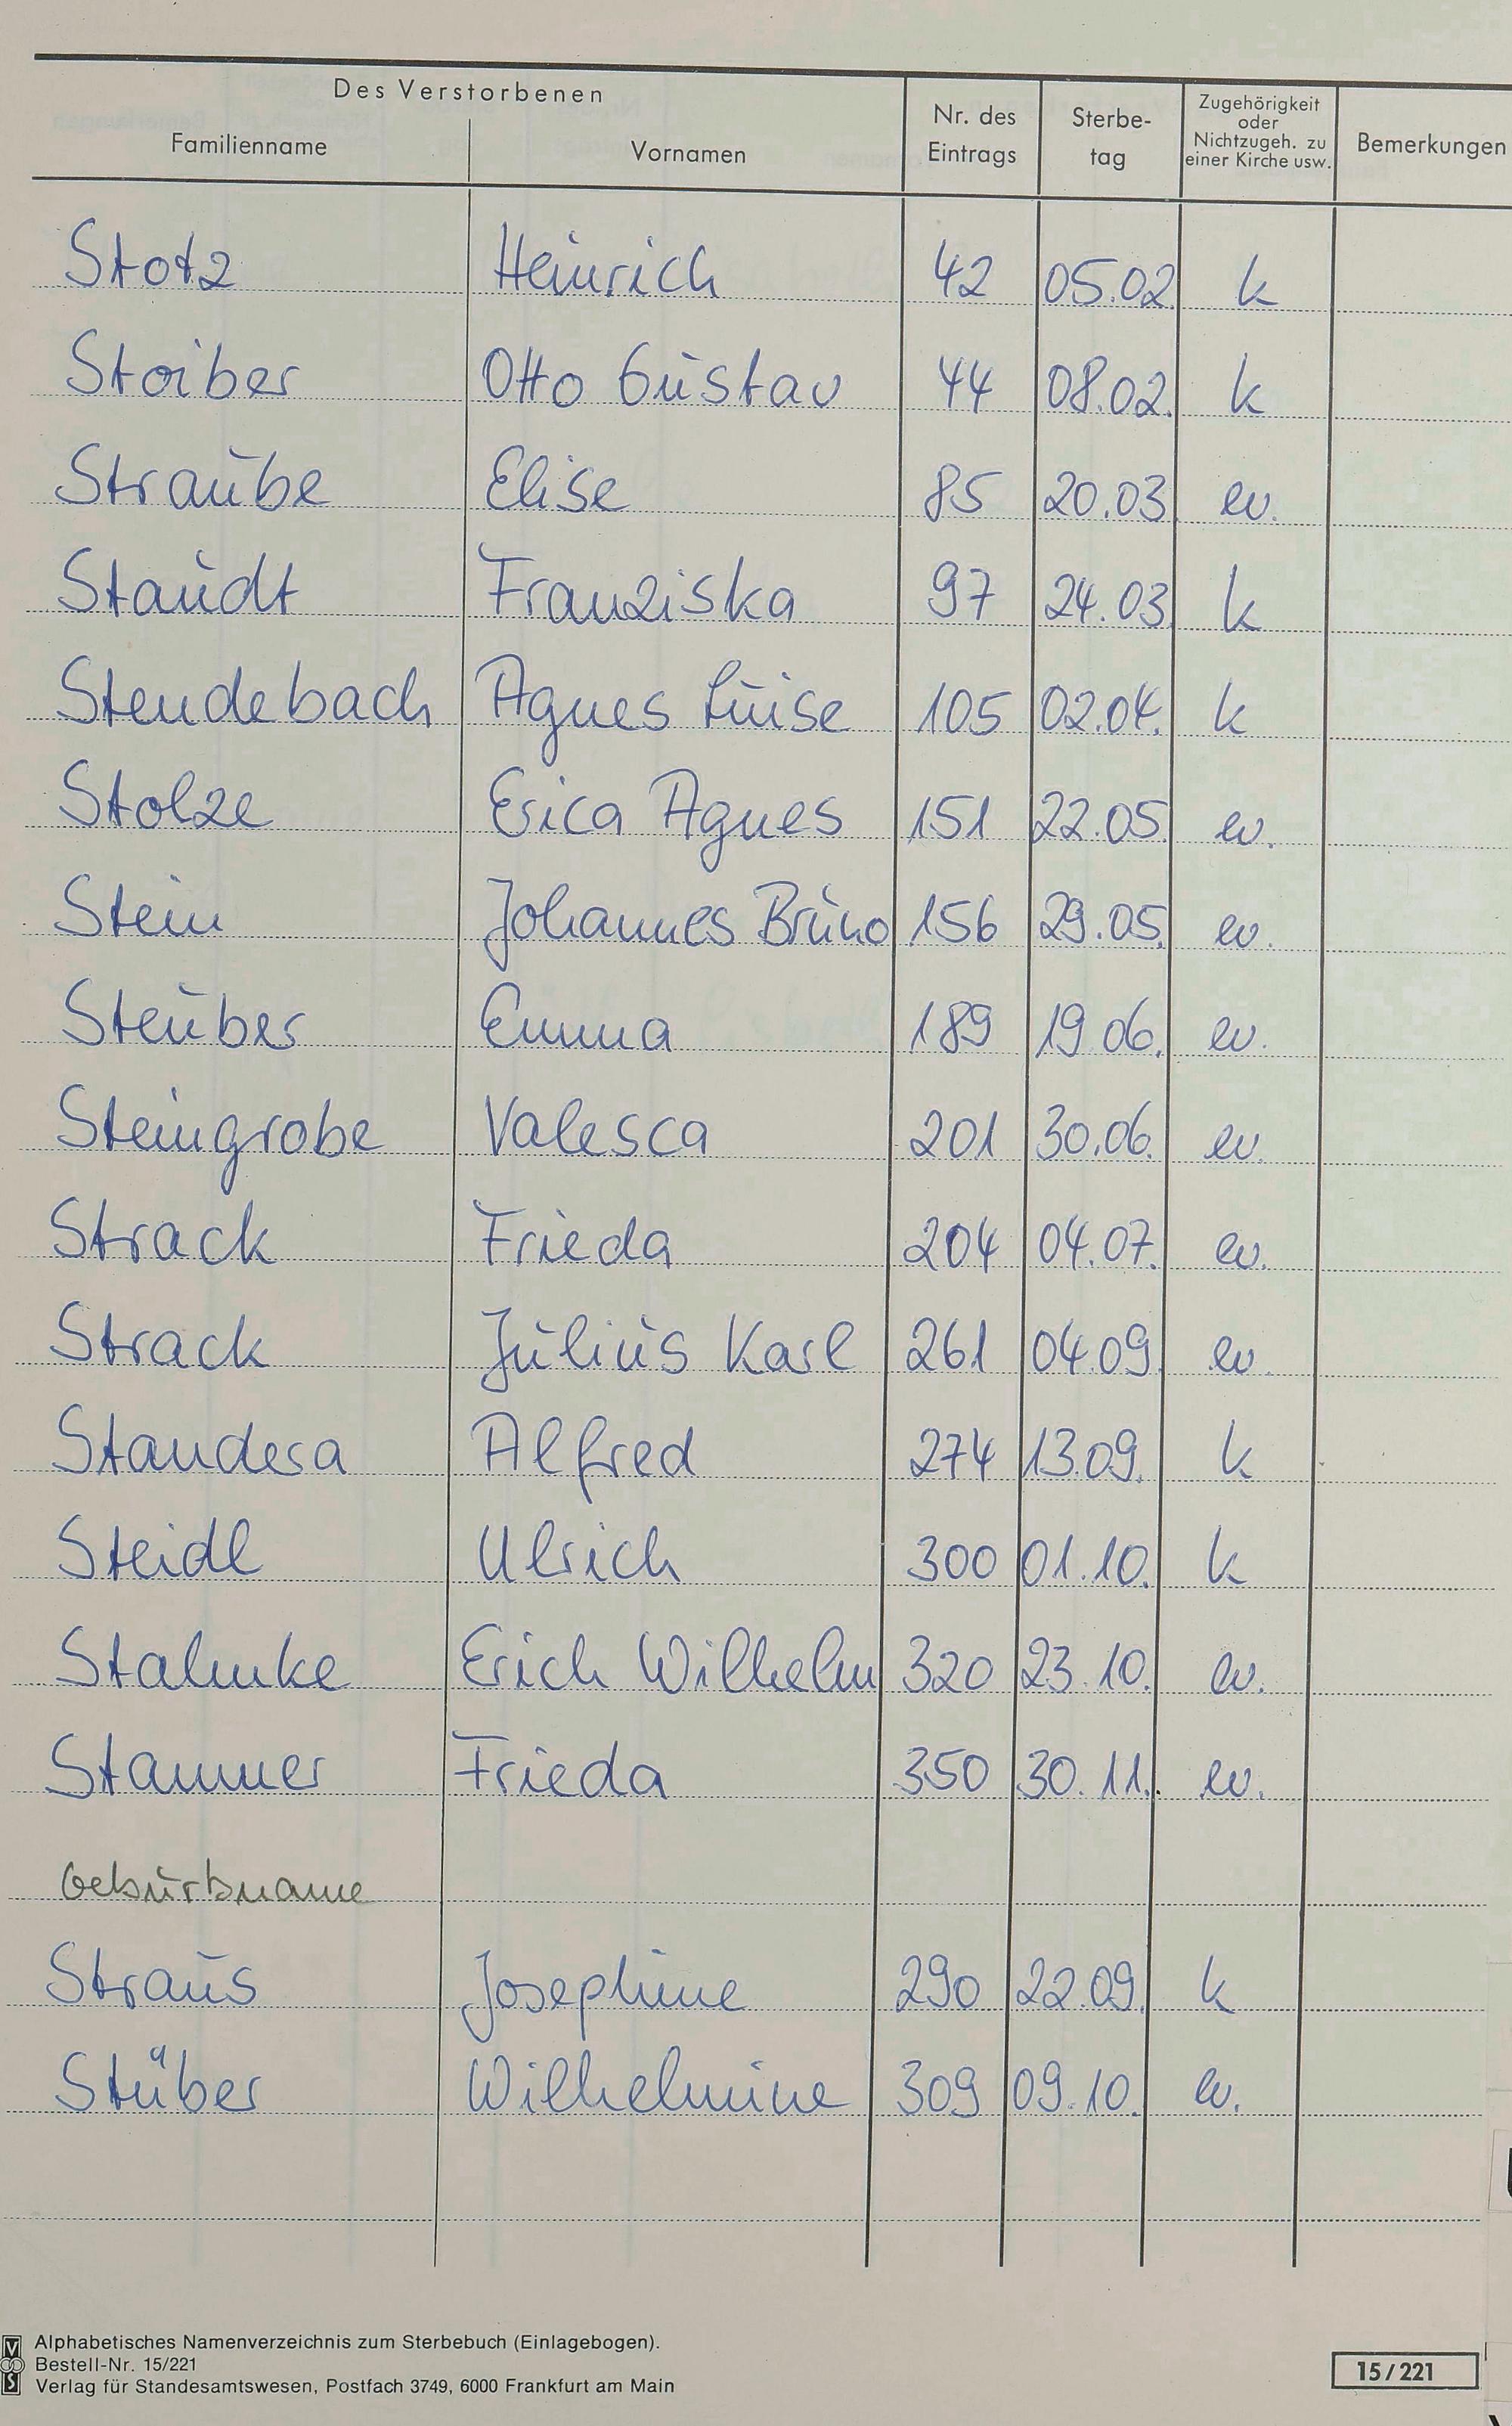 Des Verstorbenen
Familienname Vornamen Nr. des Eintrags Sterbe-tag Zugehörigkeit oder Nichtzugeh. zu einer Kirche usw. Bemerkungen
Stotz Heinrich 42 05.02 k
Stoiber Otto Gustav 44 08.02. k
Straube Elise 85 20.03. ev.
Staudt Franziska 97 24.03. k
Stendebach Agnes Luise 105 02.04. k
Stolze Erica Agnes 151 22.05. ev.
Stein Johannes Bruno 156 29.05. ev.
Steuber Emma 189 19.06. ev.
Steingrobe Valesca 201 30.06. ev.
Strack Frieda 204 04.07. ev.
Strack Julius Karl 261 04.09. ev.
Standera Alfred 274 13.09. k
Steidl Ulrich 300 01.10. k
Stahnke Erich Wilhelm 320 23.10. ev.
Stammer Frieda 350 30.11. ev.
Geburtsname
Straus Josephine 290 22.09. k
Stüber Wilhelmine 309 09.10. ev.
Alphabetisches Namenverzeichnis zum Sterbebuch (Einlagebogen).
Bestell-Nr. 15/221
Verlag für Standesamtswesen, Postfach 3749, 6000 Frankfurt am Main
15/221